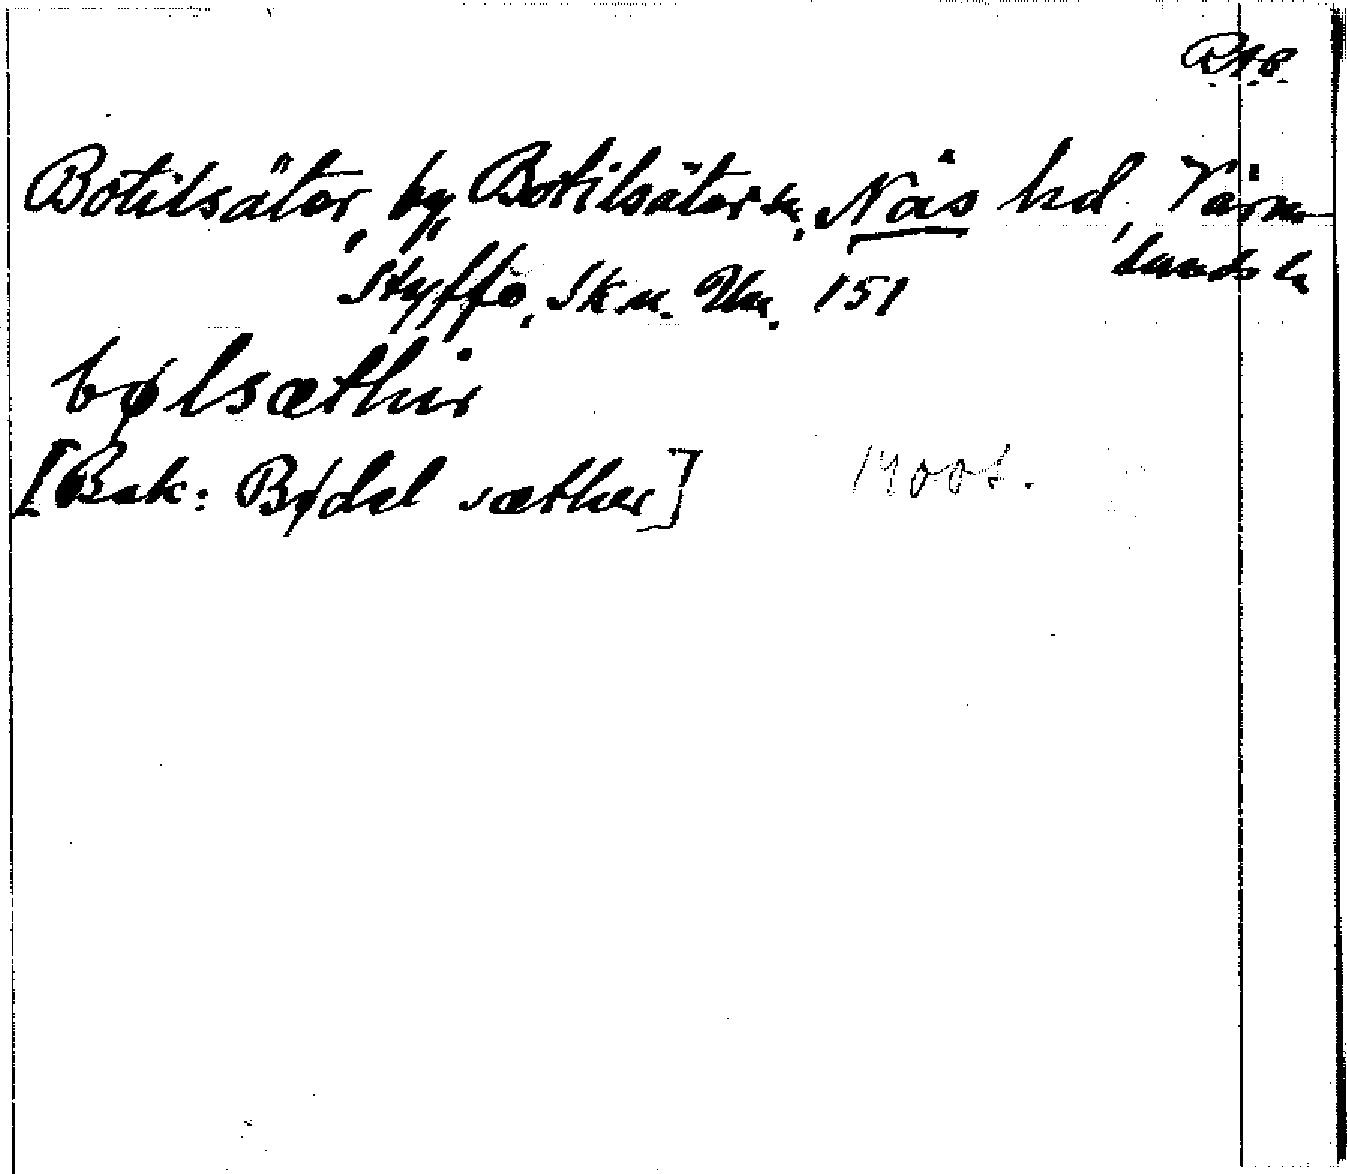 Botilsäter, by, Botilsäter sn, Näs hd, Värm-
lands l.
Styffe, Sk. u. Un. 151
bølsæthir
[Bak: Bødel sæther] 1400t.